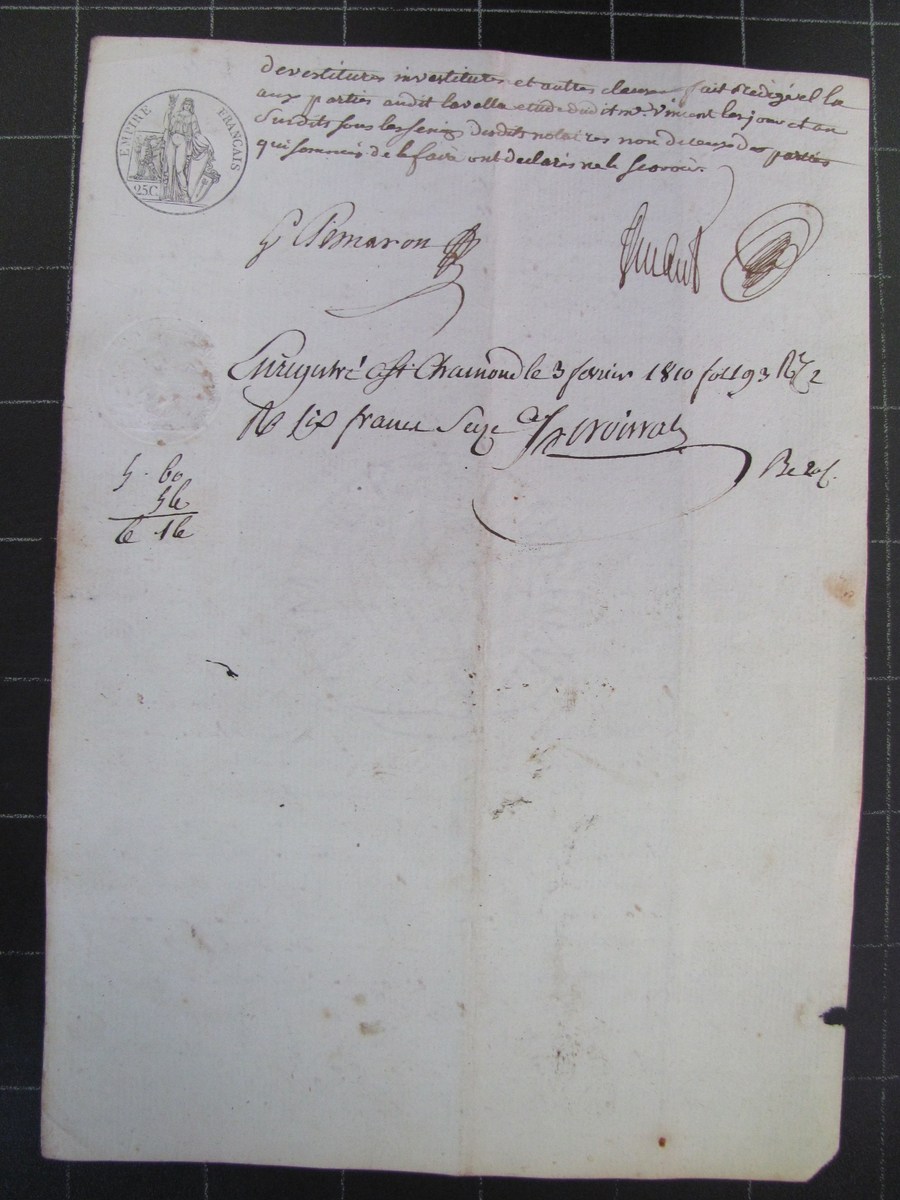 EMPIRE FRANÇAIS
25C
devestitures investitures et autres clauses fait rédigé et lu
aux parties audit lavalla etude dudit me. Vincent les jour et an
Susdits sous les seings desdits notaires non de ceux des parties
qui sommées de le faire ont declarés ne le scavoir.
Vincent
Enregistré a St. Chamond le 3 fevrier 1810 fol 193 Ro 2
R six francs Seize
5. 60
56
6 16